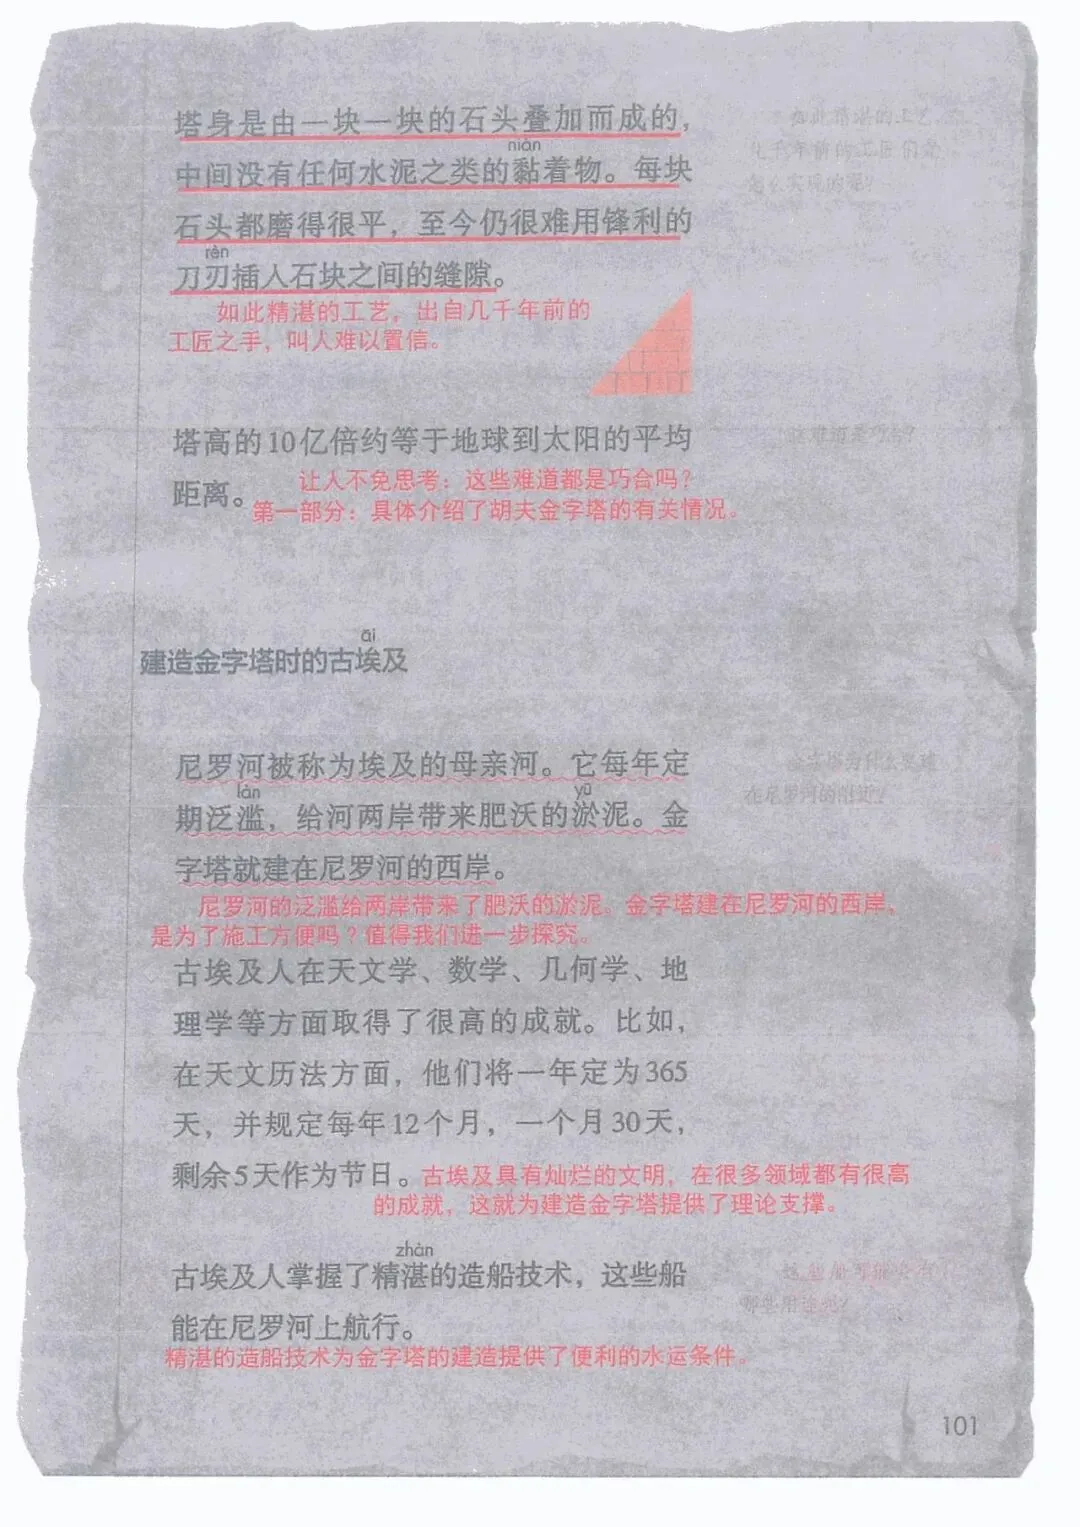 塔身是由一块一块的石头叠加而成的，
nián
中间没有任何水泥之类的黏着物。每块
石头都磨得很平，至今仍很难用锋利的
rèn
刀刃插入石块之间的缝隙。
如此精湛的工艺，出自几千年前的
工匠之手，叫人难以置信。
如此精湛的工艺，
几千年前的工匠们是
怎么实现的呢？
塔高的10亿倍约等于地球到太阳的平均
距离。
这难道是巧合？
让人不免思考：这些难道都是巧合吗？
第一部分：具体介绍了胡夫金字塔的有关情况。
āi
建造金字塔时的古埃及
尼罗河被称为埃及的母亲河。它每年定
làn yū
期泛滥，给河两岸带来肥沃的淤泥。金
字塔就建在尼罗河的西岸。
金字塔为什么要建
在尼罗河的附近？
尼罗河的泛滥给两岸带来了肥沃的淤泥。金字塔建在尼罗河的西岸，
是为了施工方便吗？值得我们进一步探究。
古埃及人在天文学、数学、几何学、地
理学等方面取得了很高的成就。比如，
在天文历法方面，他们将一年定为365
天，并规定每年12个月，一个月30天，
剩余5天作为节日。
古埃及具有灿烂的文明，在很多领域都有很高
的成就，这就为建造金字塔提供了理论支撑。
zhàn
古埃及人掌握了精湛的造船技术，这些船
能在尼罗河上航行。
这些船可能会有
哪些用途呢？
精湛的造船技术为金字塔的建造提供了便利的水运条件。
101